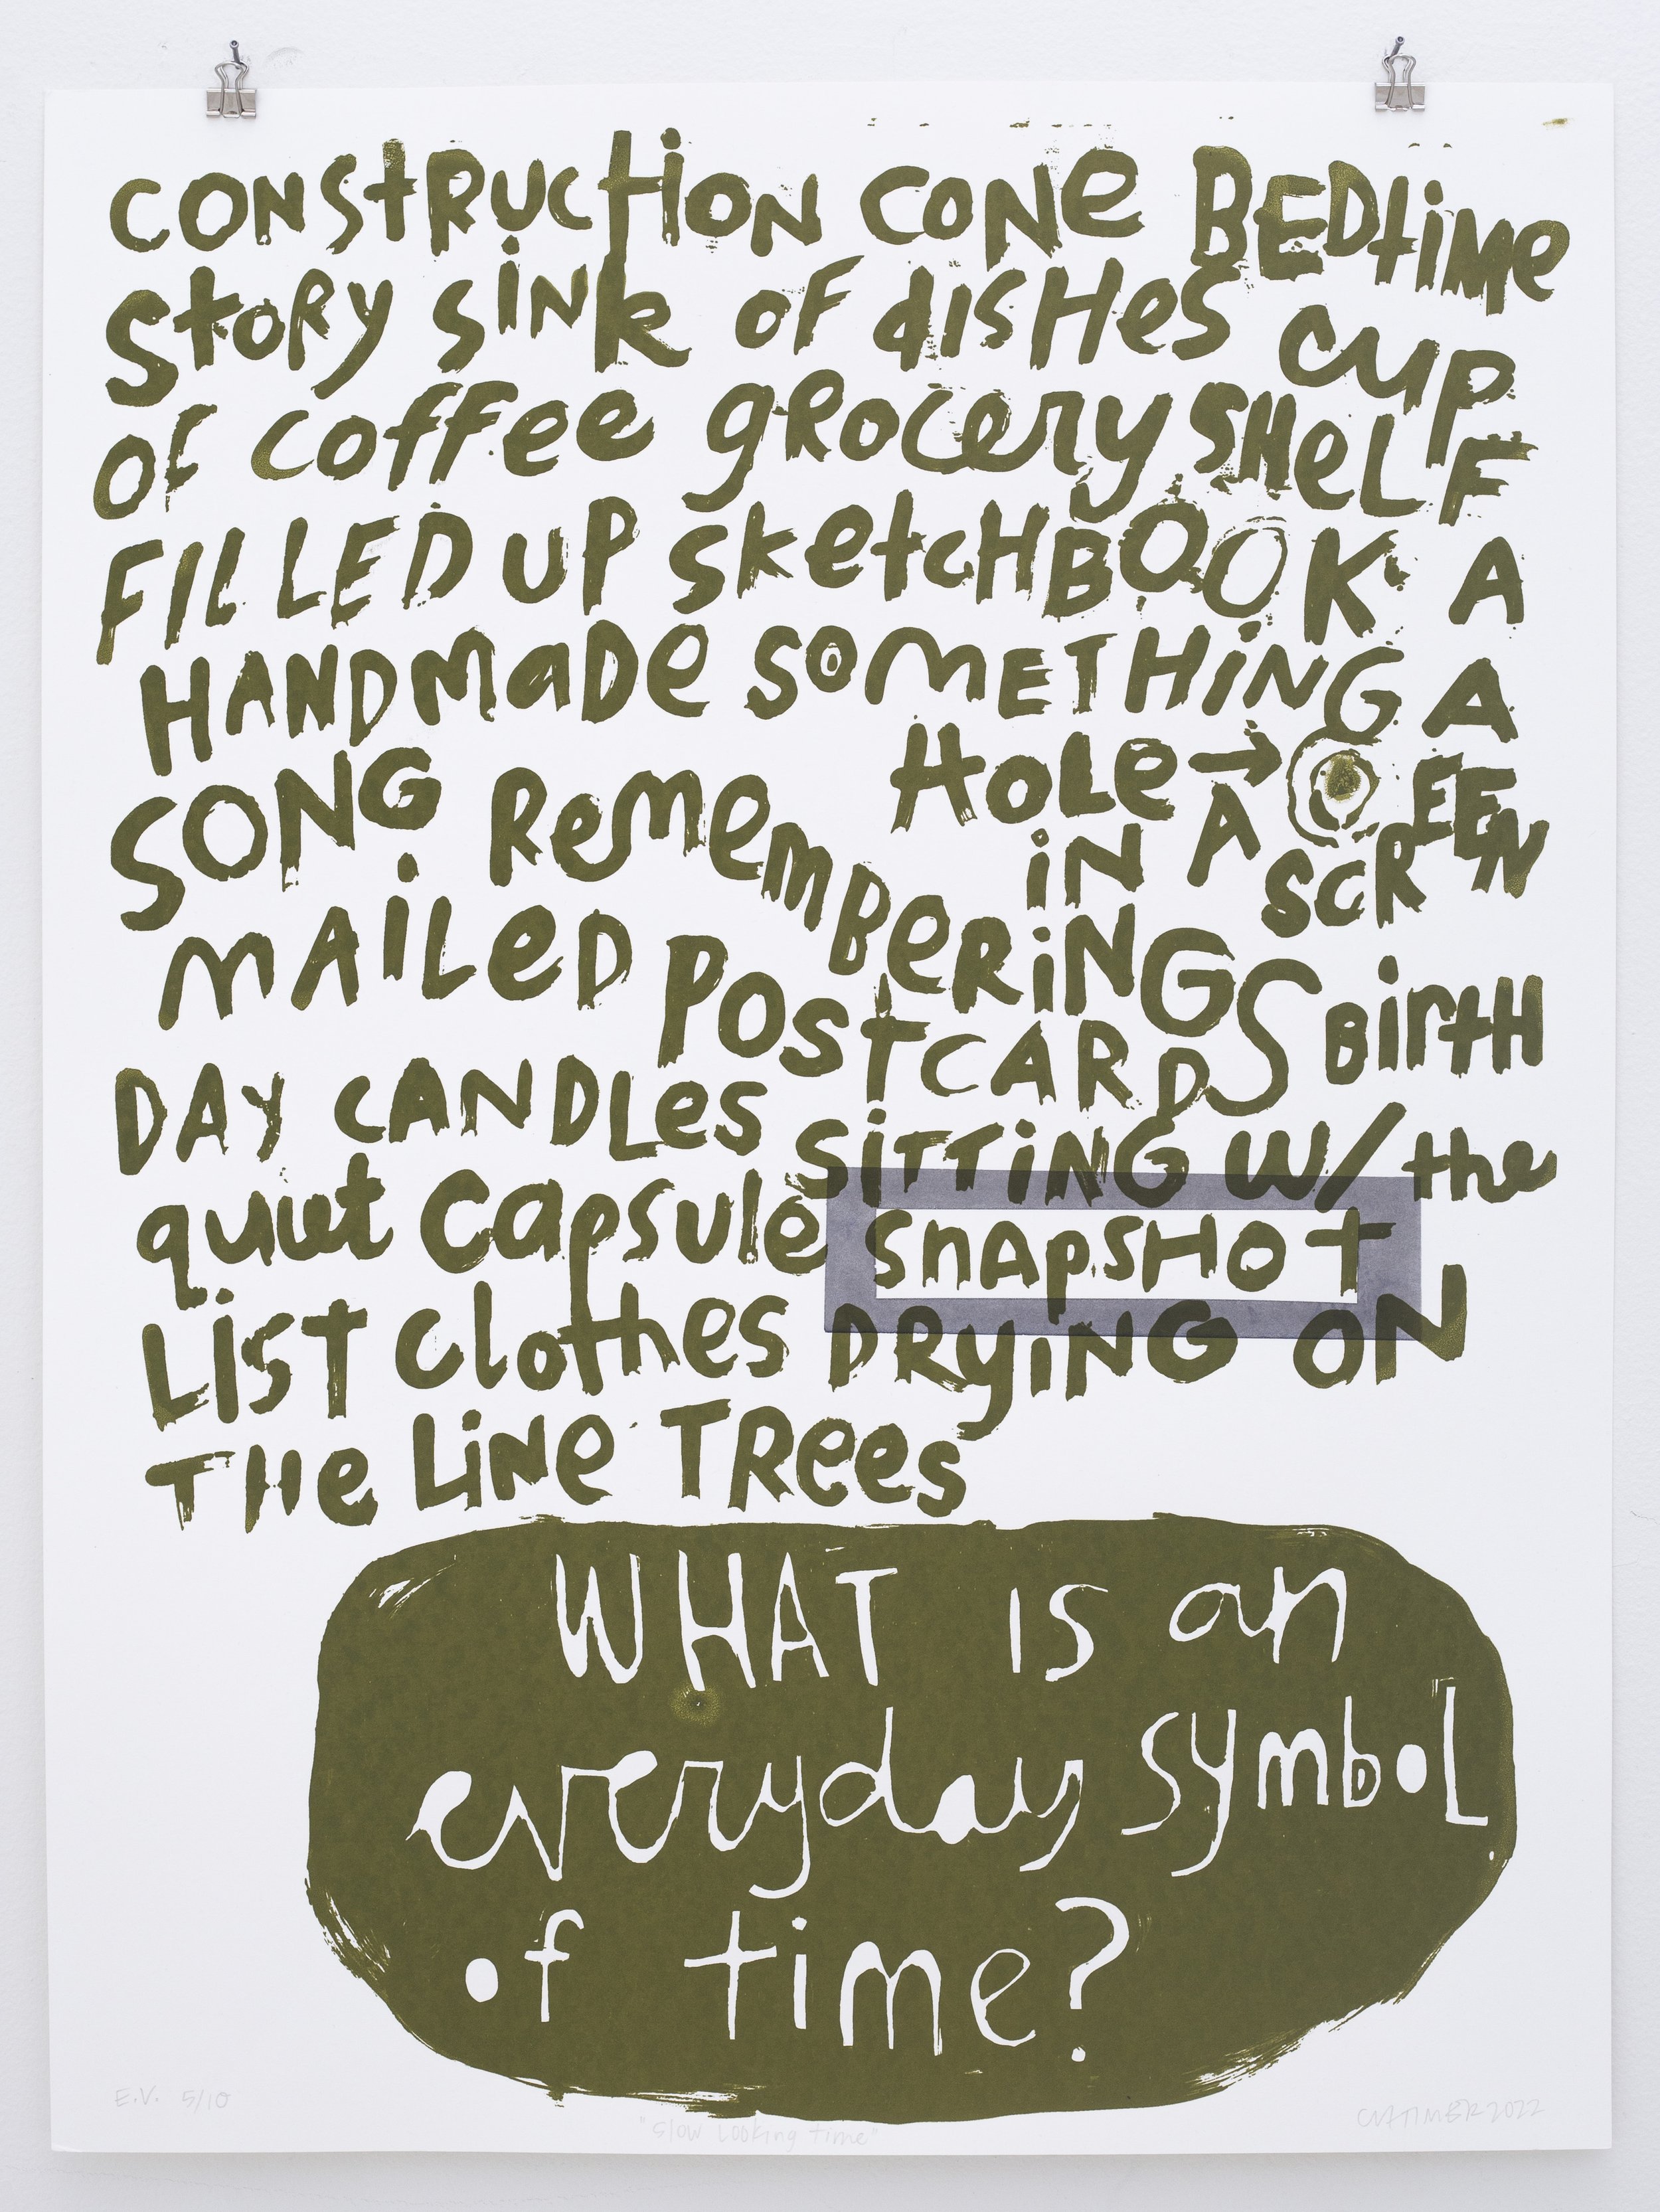 CONSTRUCTION CONE BEDTIME
STORY SINK OF DISHES CUP
OF COFFEE GROCERY SHELF
FILLED UP SKETCHBOOK A
HANDMADE SOMETHING A
SONG REMEMBERINGS
HOLE →
IN A SCREEN
MAILED POSTCARDS BIRTH
DAY CANDLES SITTING W/ the
quiet capsule SNAPSHOT
LIST Clothes DRYING ON
THE LINE TREES
WHAT IS an
everyday symbol
of time?
E.V. 5/10
"Slow Looking Time"